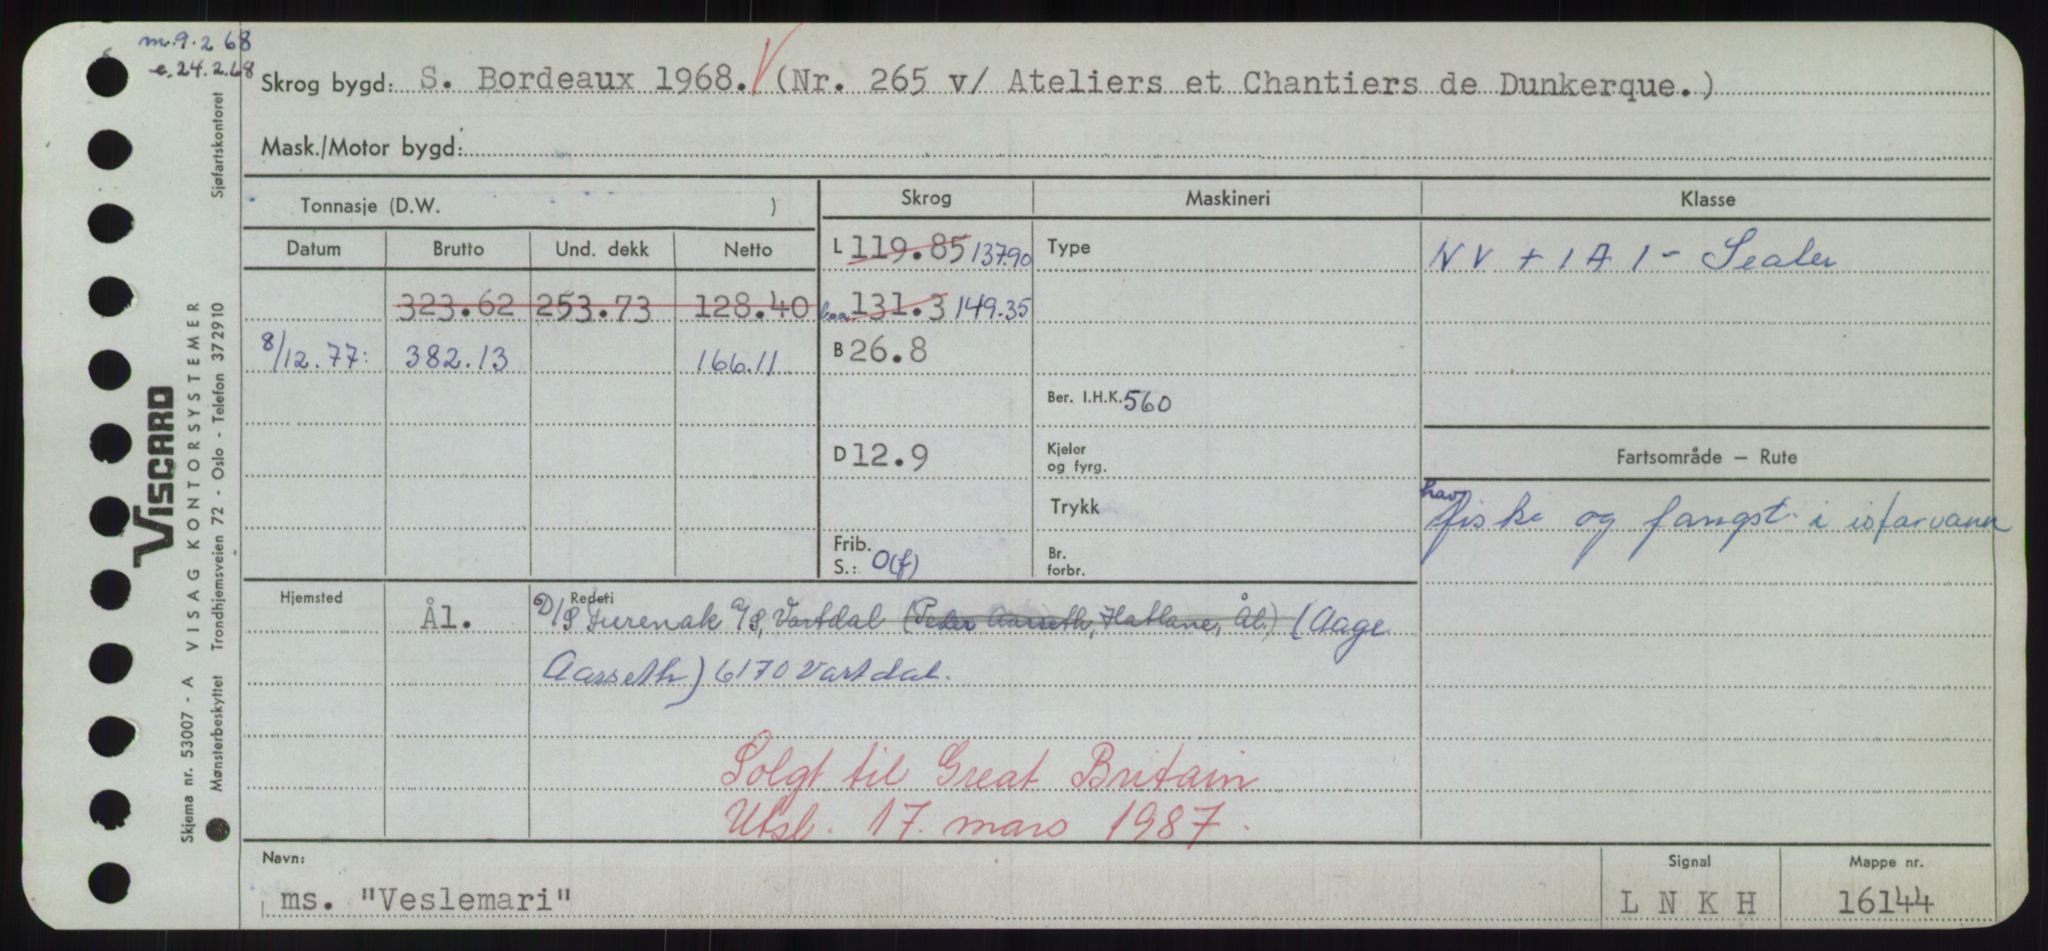 m. 9.2 68
e. 24.2.68
Skrog bygd: S. Bordeaux 1968. V (Nr. 265 v/ Ateliers et Chantiers de Dunkerque.)
Mask./Motor bygd:
Tonnasje (D.W. )
Skrog Maskineri Klasse
Datum Brutto Und. dekk Netto
L 119.85 137.90 Type NV + 1A1 - Sealer
323.62 253.73 128.40 loa 131.3 149.35
8/12.77: 382.13 166.11 B 26.8
Ber. I.H.K. 560
D 12.9 Kjeler og fyrg. Fartsområde — Rute
Trykk hav fiske og fangst i isfarvann
Frib. S.: 0(f) Br. forbr.
Hjemsted Ål. Rederi D/S Furenak A/S, Vartdal (Peder Aarseth, Hatlane, Ål.) (Aage
Aarseth) 6170 Vartdal.
Solgt til Great Britain
Utsl. 17. mars 1987.
Navn: Signal Mappe nr.
ms. "Veslemari" L N K H 16144
VISCARD
Skjema nr. 53007 - A VISAG KONTORSYSTEMER
Mønsterbeskyttet Trondhjemsveien 72 - Oslo - Telefon 372910 Sjøfartskontoret